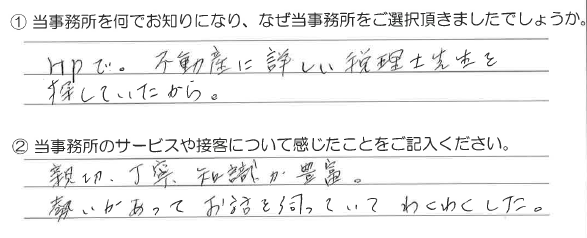 ① 当事務所を何でお知りになり、なぜ当事務所をご選択頂きましたでしょうか。
HPで。不動産に詳しい税理士先生を
探していたから。
② 当事務所のサービスや接客について感じたことをご記入ください。
親切、丁寧、知識が豊富。
勢いがあってお話を伺っていてわくわくした。